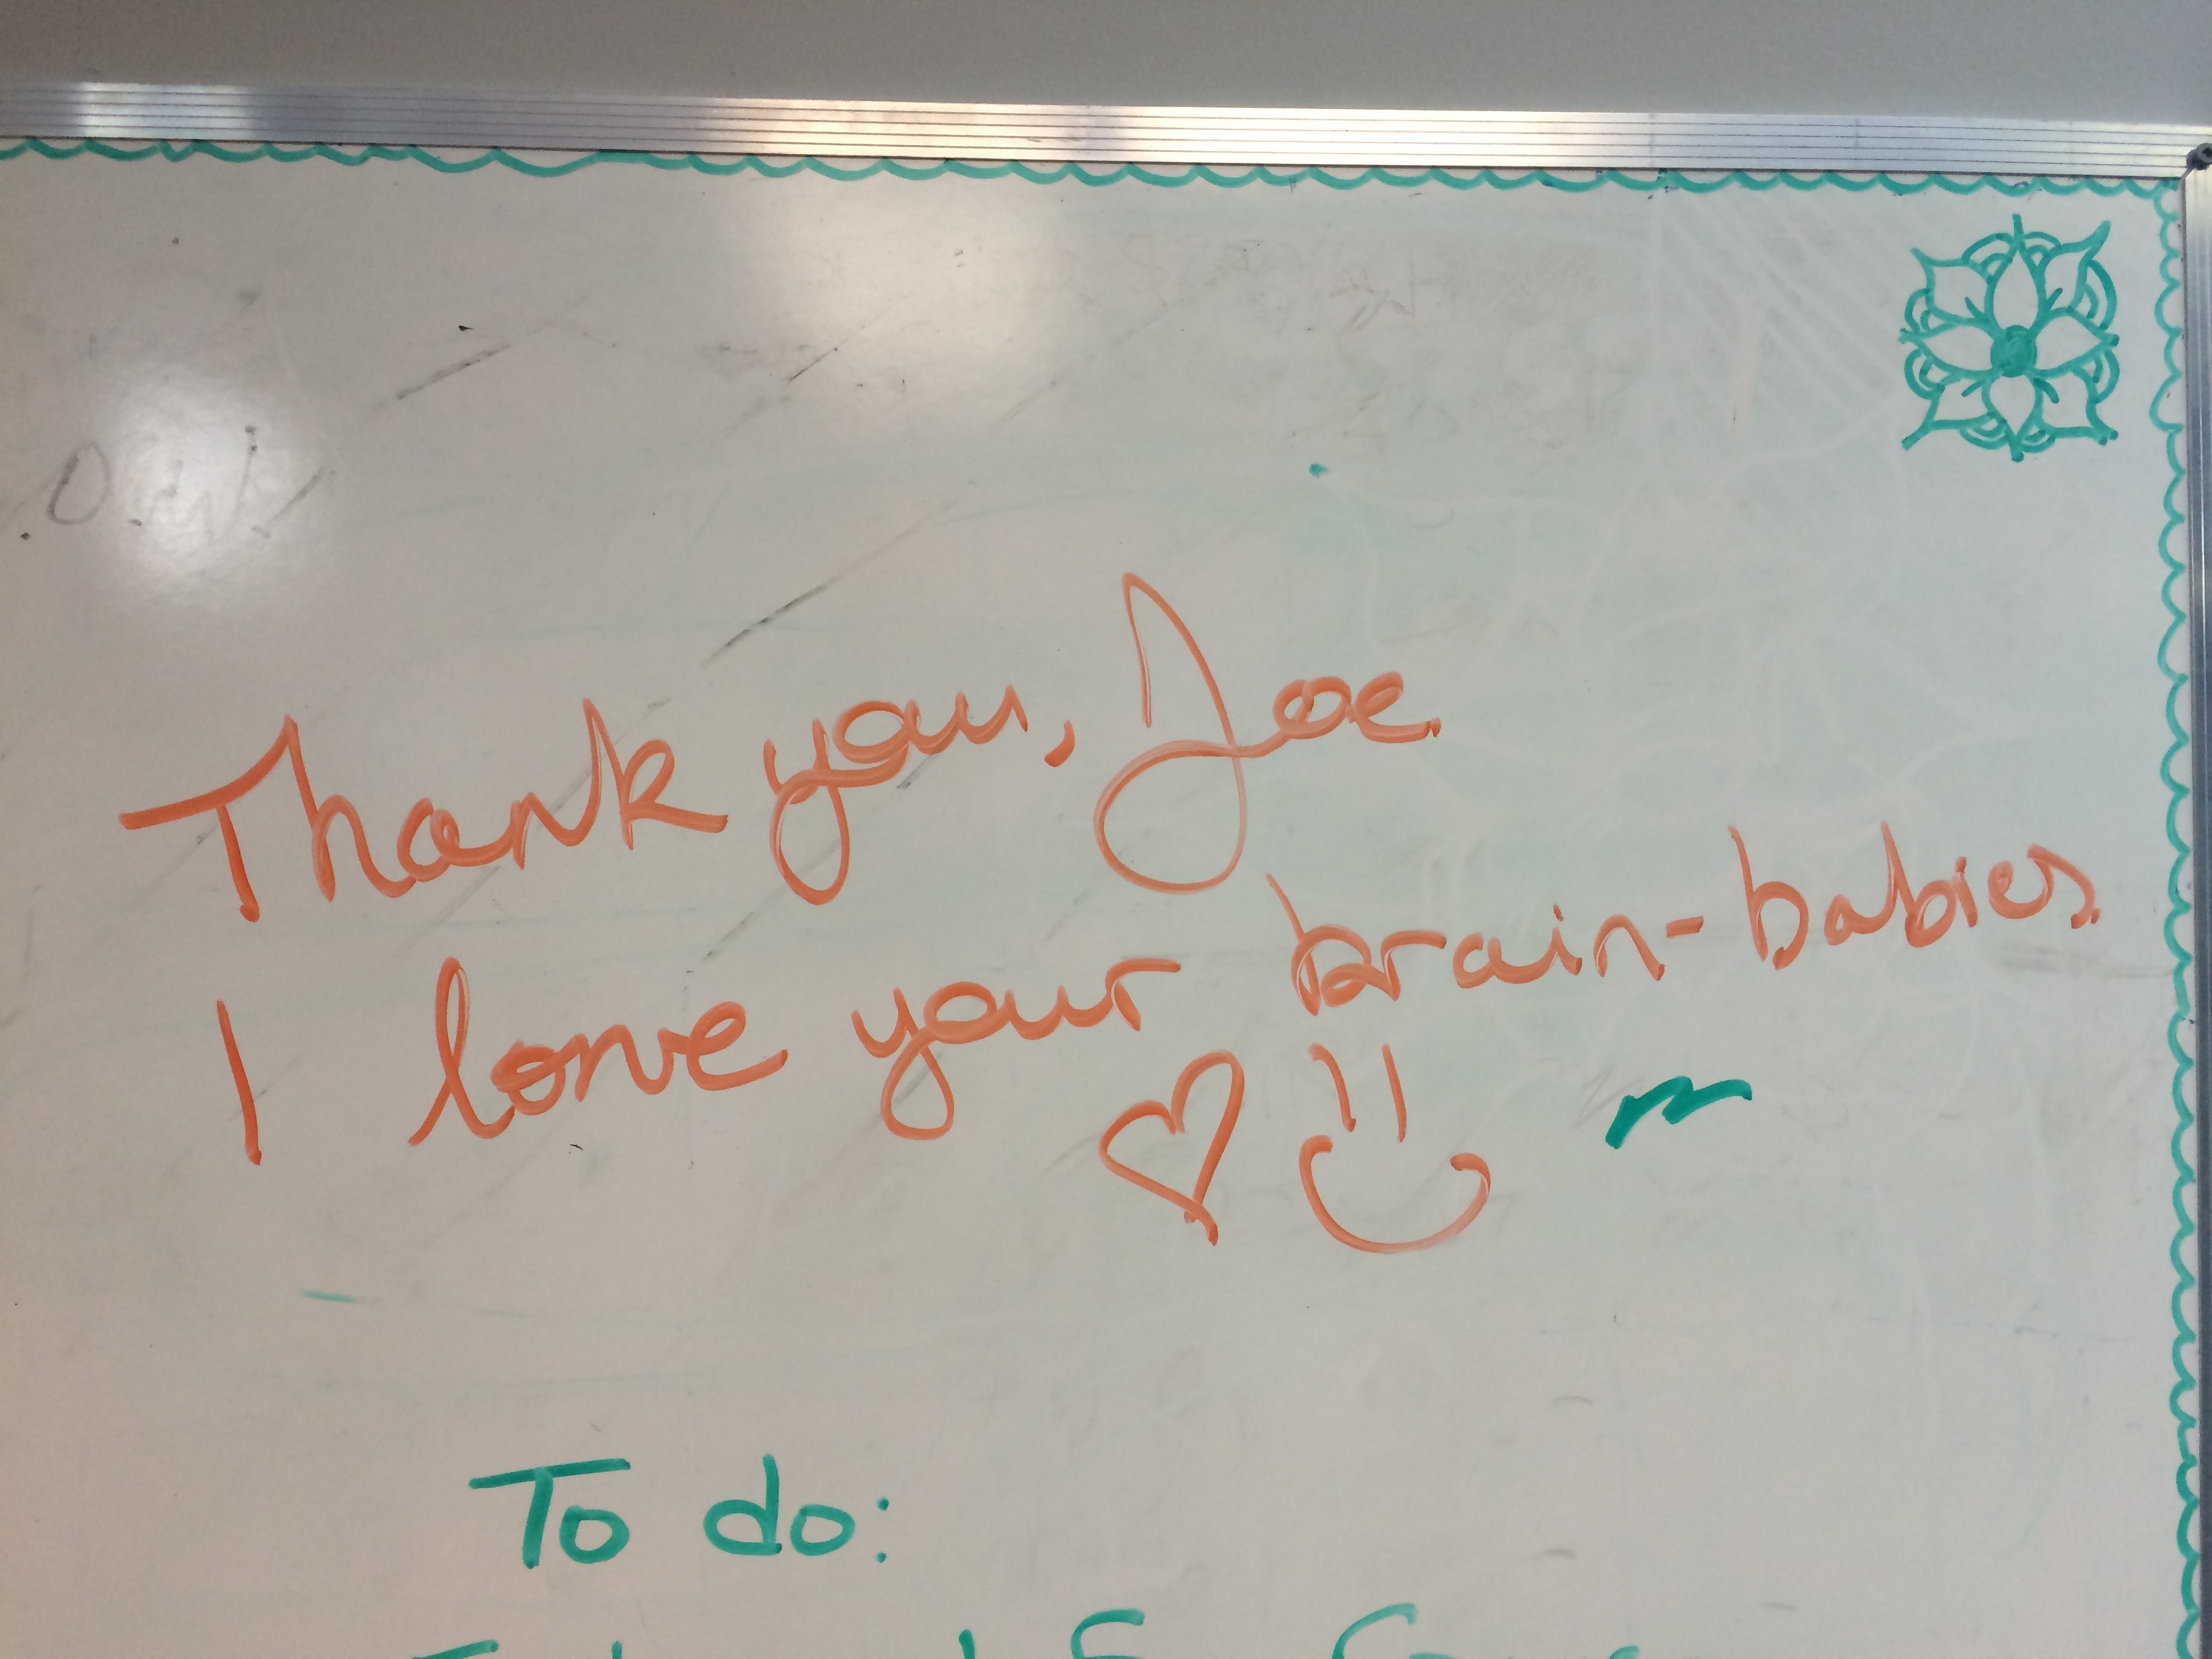 Thank you, Joe.
I love your brain-babies.
To do: